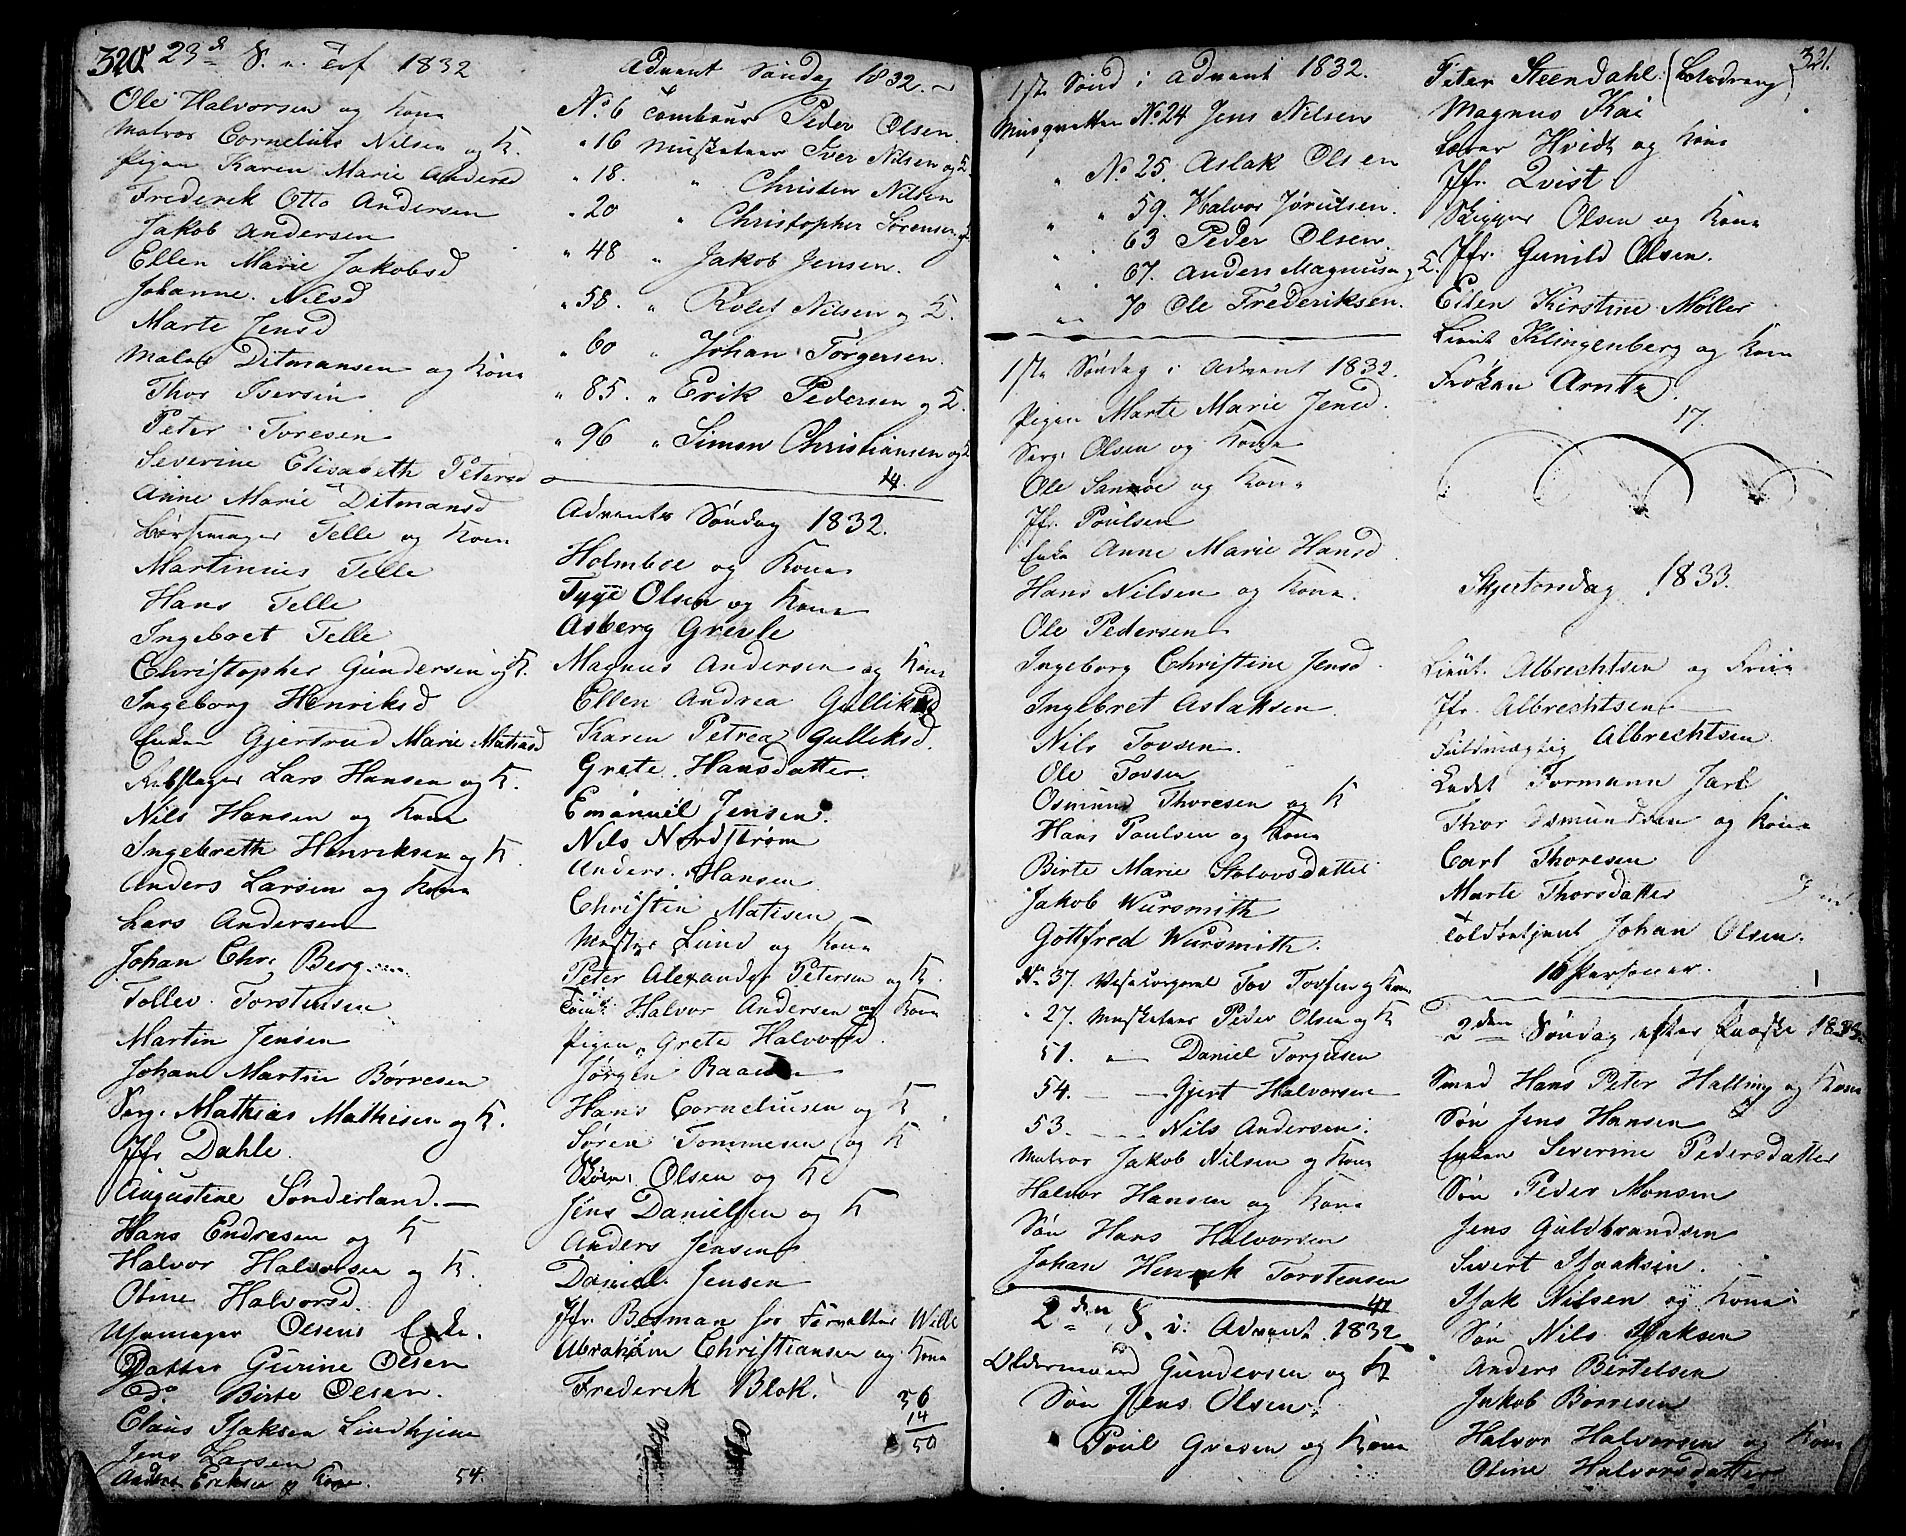 320. 23de S. e. Tref 1832
Ole Halvorsen og Kone
Matros Cornelius Nilsen og K.
Pigen Karen Marie Andersd
Frederik Otto Andersen
Jakob Andersen
Ellen Marie Jakobsd
Johanne Nilsd
Marte Jensd
Maler Ditmansen og Kone
Thor Iversen
Peter Toresen
Severine Elisabeth Petersd
Anne Marie Ditmansd
Telle og Kone
Martinius Telle
Hans Telle
Ingebret Telle
Christopher Gundersen og K.
Ingeborg Henriksd
Enken Gjertrud Marie Matisd
Rebslager Lars Hansen og K.
Nils Hansen og Kone
Ingebreth Henriksen og K.
Anders Larsen og Kone
Lars Andersen
Johan Chr. Berg
Tollev Torstensen
Martin Jensen
Johan Martin Børresen
Serg. Mathias Mathisen og K.
Jfr. Dahle
Augustine Sønderland. —
Hans Endresen og K
Halvor Halvorsen og K.
Otine Halvorsd.
Olsens Enke.
Datter Gurine Olsen
Do Birte Olsen.
Claus Isaksen Lindhjem
Jens Larsen
Anders Eriksen og Kone. 54.
Advent Søndag 1832. ~
No. 6 Tambour Peder Olsen
" 16 Musketeer Iver Nilsen og K.
" 18. " Christen Nilsen
" 20 " Christopher Sørensen og K
" 48 " Jakob Jensen.
" 58. " Rolef Nilsen og K.
" 60 " Johan Torgersen.
" 85. " Erik Pedersen og K.
" 96 " Simon Christiansen og K
14.
Advents Søndag 1832.
Holmboe og Kone
Tyge Olsen og Kone
Asberg Greple
Magnus Andersen og Kone
Ellen Andrea Gulliksd
Karen Petrea Gulliksd.
Grete Hansdatter.
Emanuel Jensen.
Nils Nordstrøm
Anders Hansen
Christen Matisen
Lund og Kone
Peter Alexander Petersen og K.
Halvor Andersen og Kone
Pigen Grete Halvorsd.
Jørgen
Hans Corneliusen og K
Søren Tommesen og K
Olsen og K
Jens Danielsen og K
Anders Jensen
Daniel Jensen
Jfr. Besman hos Forvalter Wille
Abraham Christiansen og Kone
Frederik Blok.
36
14
50
1ste Sønd i Advent 1832.
Musqvetter No. 24 Jens Nilsen
" No 25. Aslak Olsen
" " 59. Halvor Jørutsen.
" " 63 Peder Olsen.
" " 67. Anders Magnusen og K.
" " 70 Ole Frederiksen.
1ste Søndag i Advent 1832.
Pigen Marte Marie Jensd.
Serg. Olsen og Kone
Ole Sannøe og Kone
Jfr. Poulsen
Enke Anne Marie Hansd
Hans Nilsen og Kone.
Ole Pedersen
Ingeborg Christine Jensd.
Ingebret Aslaksen.
Nils Tovsen.
Ole Tovsen
Osmund Thoresen og K
Hans Paulsen og Kone
Birte Marie Stolovsdatter
Jakob Wursmith
Gottfred Wursmith.
No. 37. Visecorporal Tov Tovsen og Kone
" 27. Musketeer Peder Olsen og K
51. " — Daniel Torgusen
54. — — Gjert Halvorsen
53. — — Nils Andersen.
Matros Jakob Nilsen og Kone
Halvor Hansen og Kone
Søn Hans Halvorsen
Johan Henrik Torstensen
41
2den S. i Advent 1832
Oldermand Gundersen og K
Søn Jens Olsen.
Poul Gresen og Kone
321.
Peter Steendahl. (Lotsdreng)
Magnus Kai
Lærer Hvidt og Kone
Jfr. Qvist
Skipper Olsen og Kone
Jfr. Gunild Olsen.
Ellen Kirstine Møller
Lieut Klingenberg og Kone
Frøken Arntz.
17.
Skjertorsdag 1833.
Lieut. Albrechtsen og Frue
Jfr. Albrechtsen
Fuldmægtig Albrechtsen
Cadet Formann Jarl
Thor Osmundsen og Kone
Carl Thoresen
Marte Thorsdatter
Toldbetjent Johan Olsen.
10 Personer.
2den Søndag efter Paaske 1833
Smed Hans Peter Halling og Kone
Søn Jens Hansen
Enken Severine Pedersdatter
Søn Peder Monsen
Jens Guldbrandsen
Sivert Isaaksen.
Isak Nilsen og Kone
Søn Nils Isaksen
Anders Bertelsen
Jakob Børresen
Halvor Halvorsen og Kone
Otine Halvorsdatter